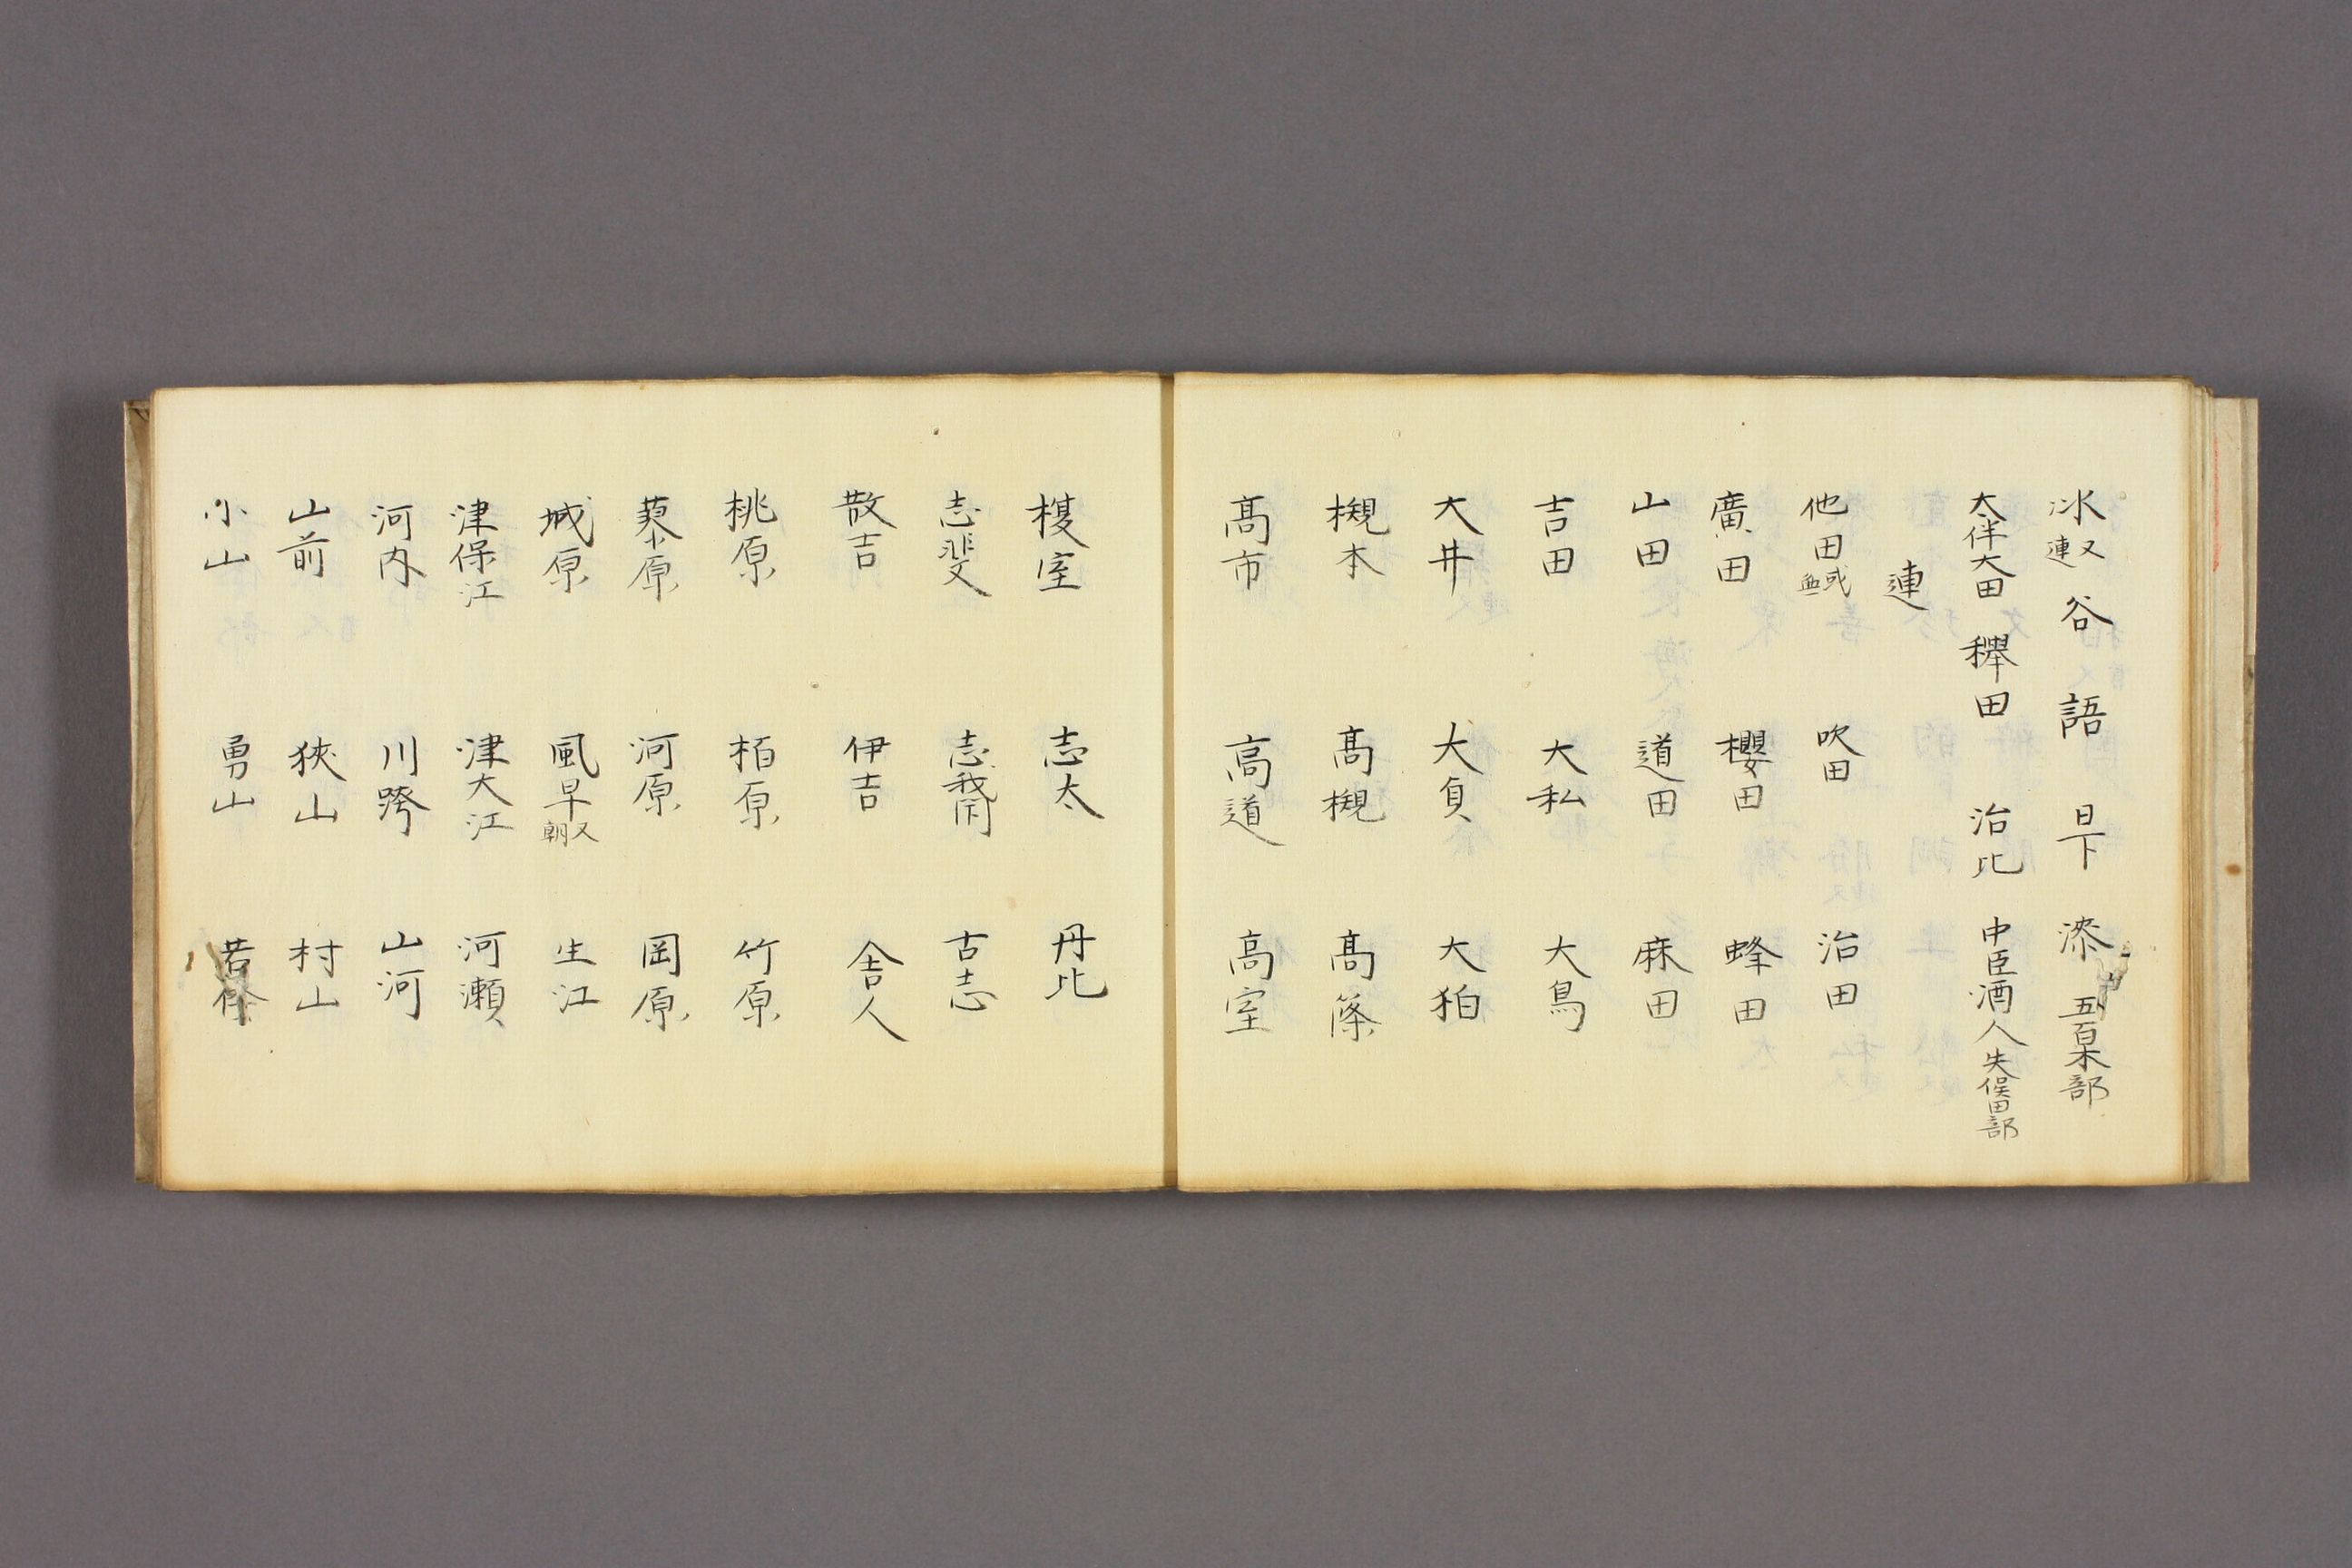 氷又連 谷 語 日下 漆 五百木部
大伴大田 欅田 治比 中臣酒人 矢俣田部
連
他田或無 吹田 治田
廣田 櫻田 蜂田
山田 道田 麻田
吉田 大私 大鳥
大井 大負 大狛
槻本 髙槻 髙篠
髙市 高道 高室
榎室 志太 丹比
志斐 志我閇 古志
散吉 伊吉 舎人
桃原 栢原 竹原
藤原 河原 岡原
城原 風早又朝 生江
津保江 津大江 河瀬
河内 川跨 山河
山前 狹山 村山
小山 勇山 若